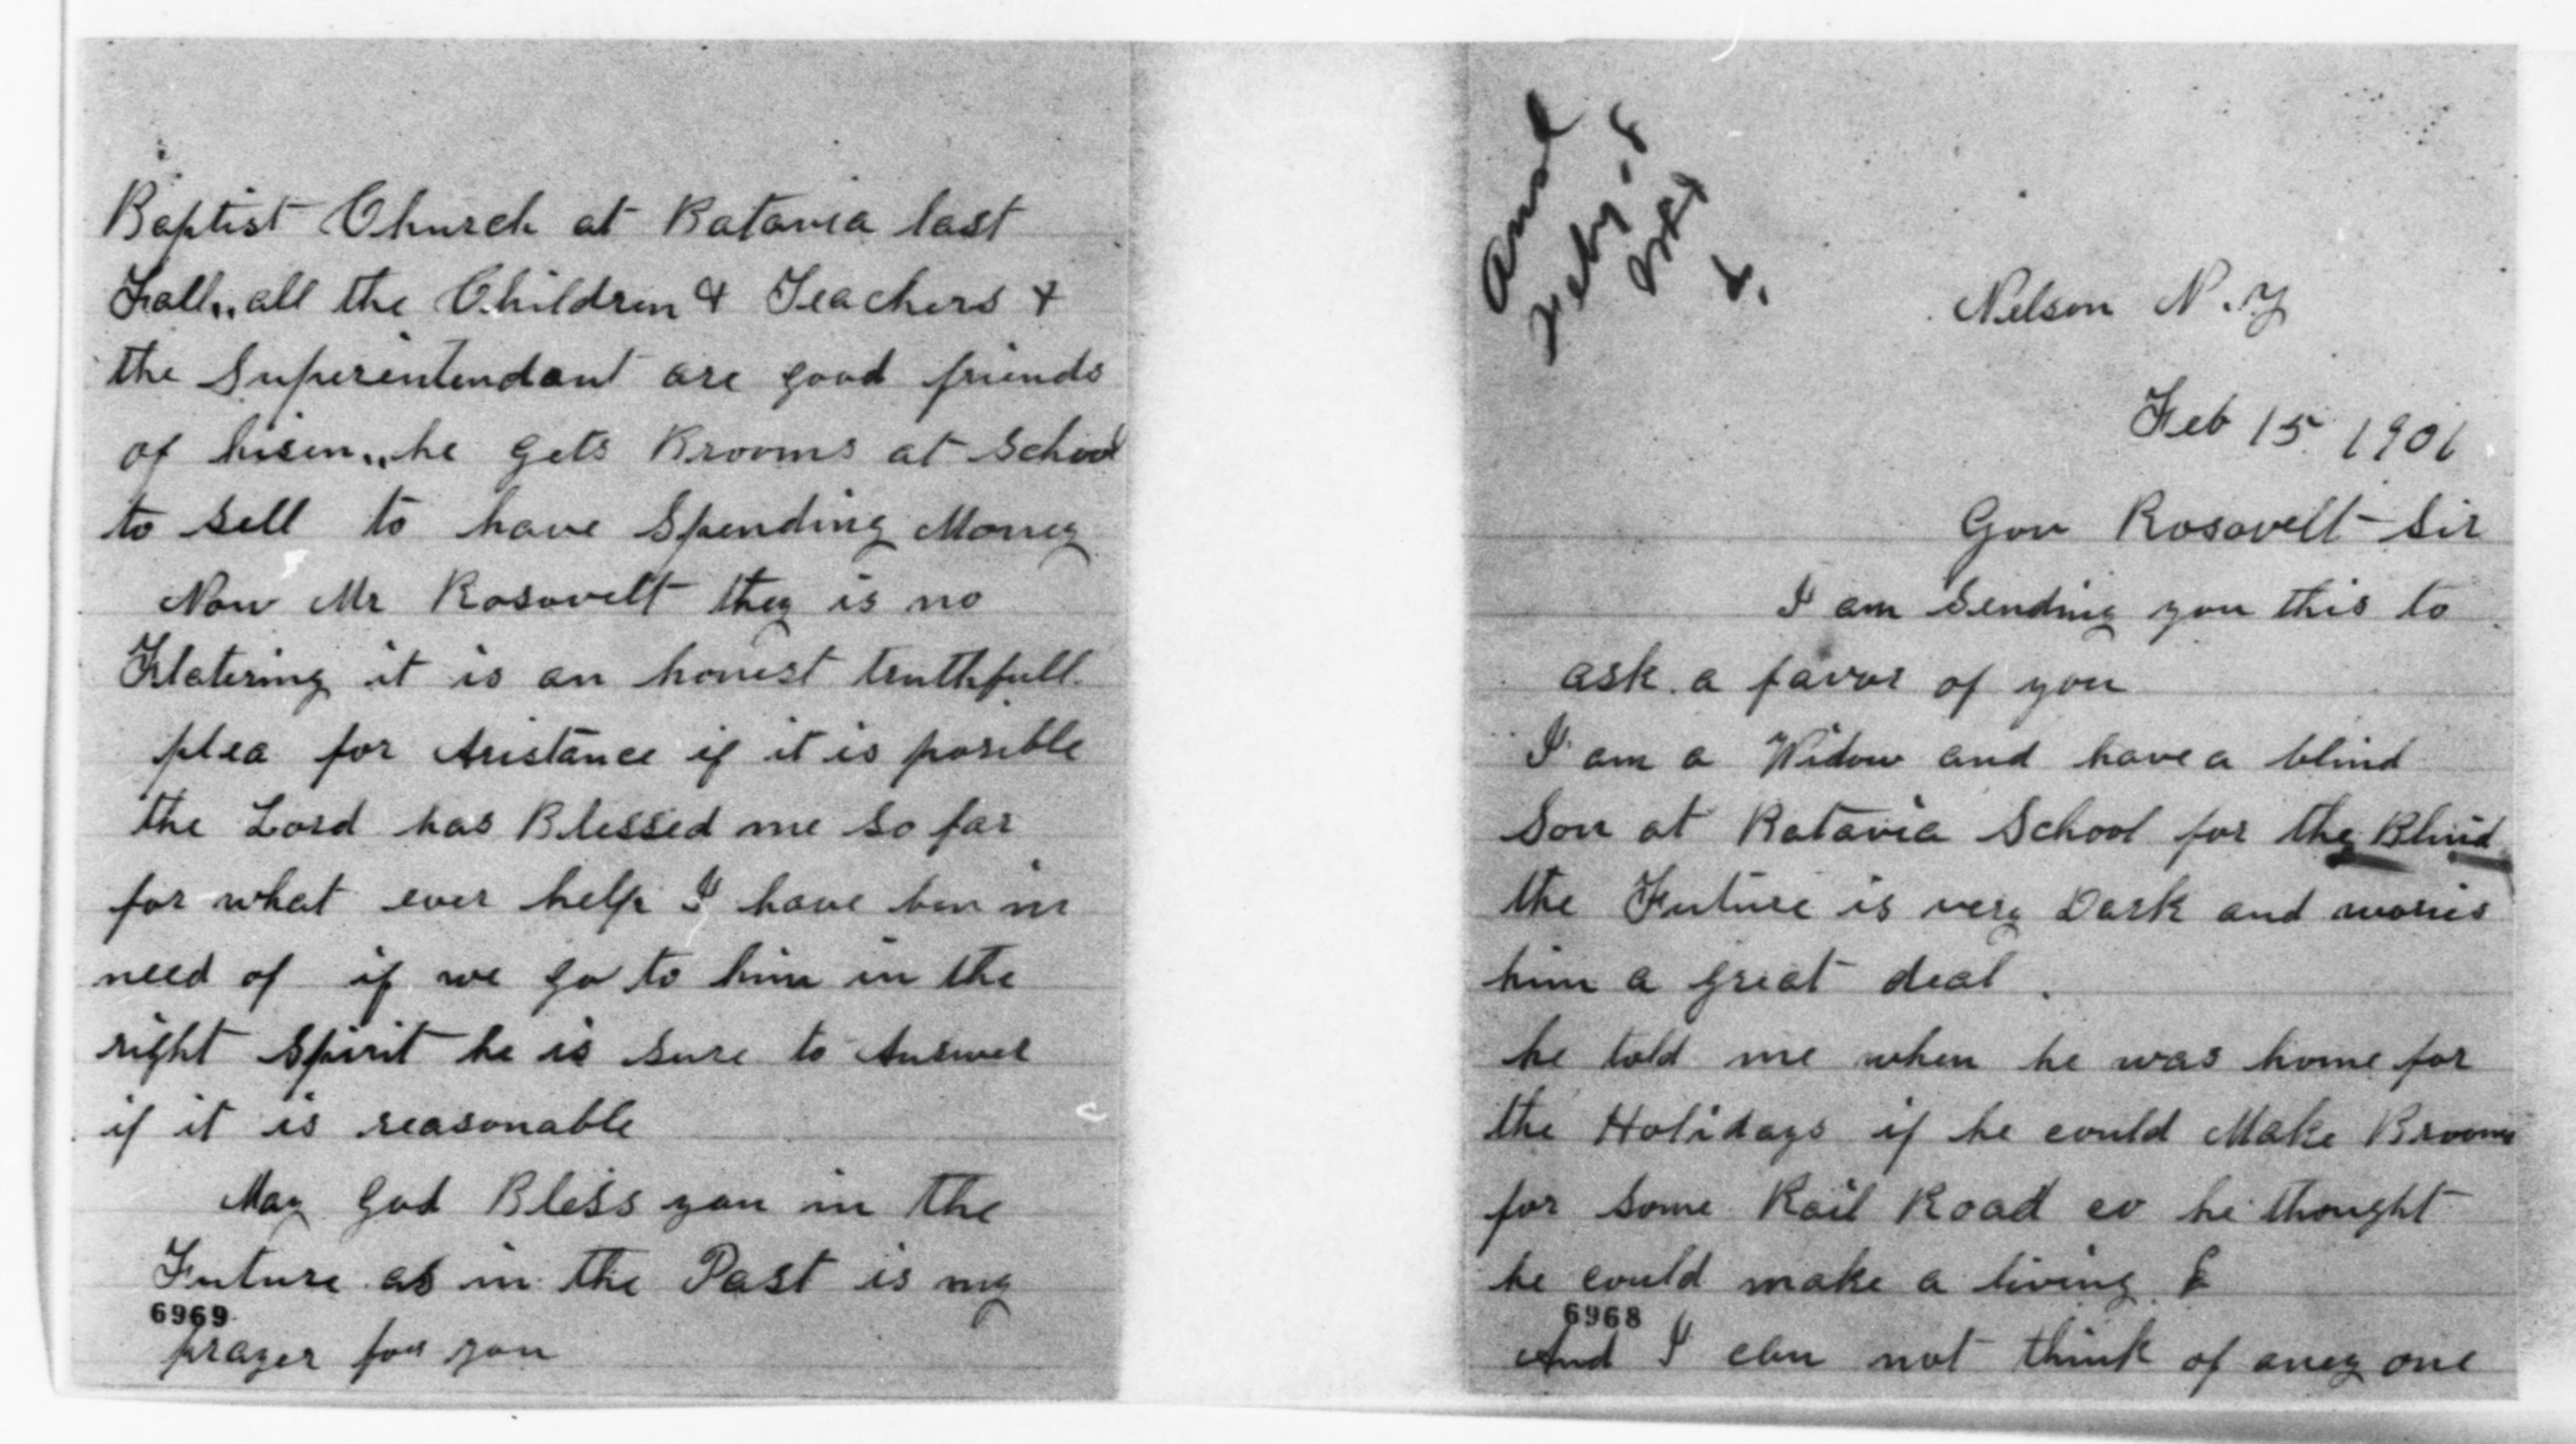 Baptist Church at Batavia last
Fall,, all the Children & Teachers &
the Superentendant are good friends
of hisen,, he gets Brooms at School
to sell to have Spending Money
Now Mr Rosovelt they is no
Flatering it is an honest truthfull
plea for Asistance if it is posible
the Lord has Blessed me so far
for what ever help I have ben in
need of if we go to him in the
right Spirit he is sure to Answer
if it is reasonable
May God Bless you in the
Future as in the Past is my
6969
prayer for you
Ansd
Feby
Nelson N.Y
Feb 15 1901
Gov Rosovelt Sir
I am Sending you this to
ask a favor of you
I am a Widow and have a blind
Son at Batavia School for the Blind
the Future is very Dark and wories
him a great deal.
he told me when he was home for
the Holidays if he could Make Brooms
for some Rail Road co he thought
he could make a living &
6968
And I can not think of aney one